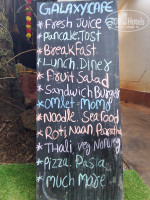 GALAXYCAFE
*Fresh Juice
*Pancake, Tost
*Breakfast
*Lunch Diner
*Fruit Salad
*Sandwich Burger
*Omlet-momo
*Noodle Seafood
*Roti, Naan Paratha
*Thali veg Nonveg
*Pizza Pasta
much More